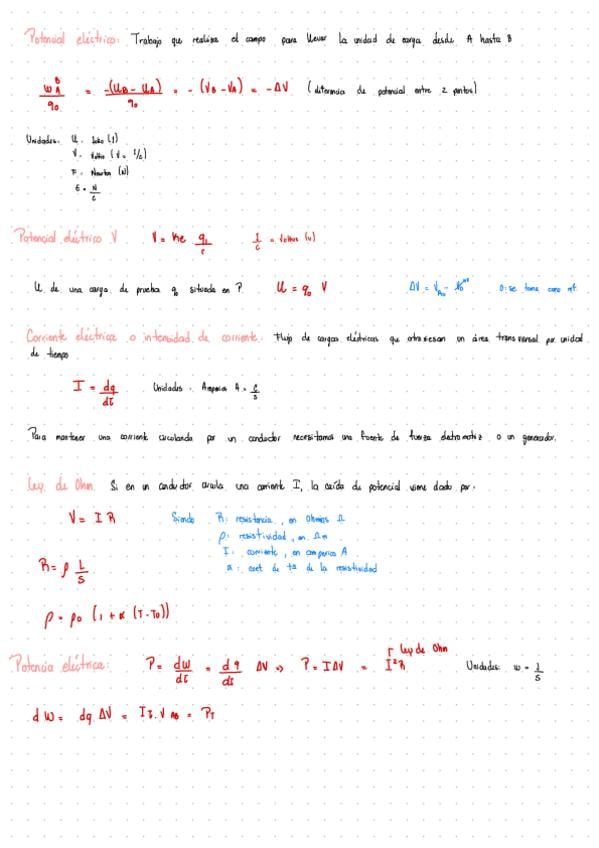 Potencial eléctrico: Trabajo que realiza el campo para llevar la unidad de carga desde A hasta B
W_A^B / q₀ = -(U_B - U_A) / q₀ = -(V_B - V_A) = -ΔV (diferencia de potencial entre 2 puntos)
Unidades: U. Julio (J)
V. Voltio (V = J/C)
F. Newton (N)
E = N/C
Potencial eléctrico V V = Ke q₁/r J/C = Voltios (V)
U de una carga de prueba q₀ situada en P. U = q₀ V ΔV = V_A - V₀ 0: se toma como ref.
Corriente eléctrica o intensidad de corriente: Flujo de cargas eléctricas que atraviesan un área transversal por unidad
de tiempo
I = dq/dt Unidades: Amperios A = C/S
Para mantener una corriente circulando por un conductor necesitamos una fuente de fuerza electromotriz o un generador.
Ley de Ohm. Si en un conductor circula una corriente I, la caída de potencial viene dado por:
V = I R Siendo R: resistencia, en Ohmios Ω
ρ: resistividad, en Ωm
I: corriente, en amperios A
R = ρ L/S α: coef de tª de la resistividad
ρ = ρ₀ (1 + α (T - T₀))
Ley de Ohm
Potencia eléctrica: P = dW/dt = dq/dt ΔV ⇒ P = IΔV = I²R Unidades: W = J/S
dW = dq ΔV = I t. V_AB = Pt